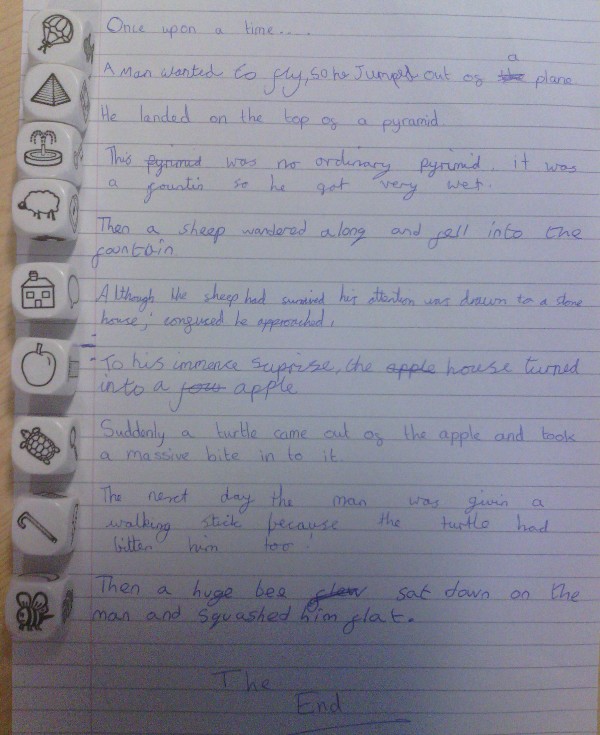 Once upon a time.....
a
A Man wanted to fly, so he Jumped out of the plane
He landed on the top of a pyramid.
This pyrimid was no ordinary pyrimid. it was
a fountin so he got very wet.
Then a sheep wandered along and fell into the
fountain.
Although the sheep had survived his attention was drawn to a stone
house; confused he approached.
To his immence suprise, the apple house turned
into a apple
Suddenly a turtle came out of the apple and took
a massive bite in to it.
The next day the man was givin a
walking stick because the turtle had
bitten him too!
Then a huge bee flew sat down on the
man and squashed him flat.
The
End